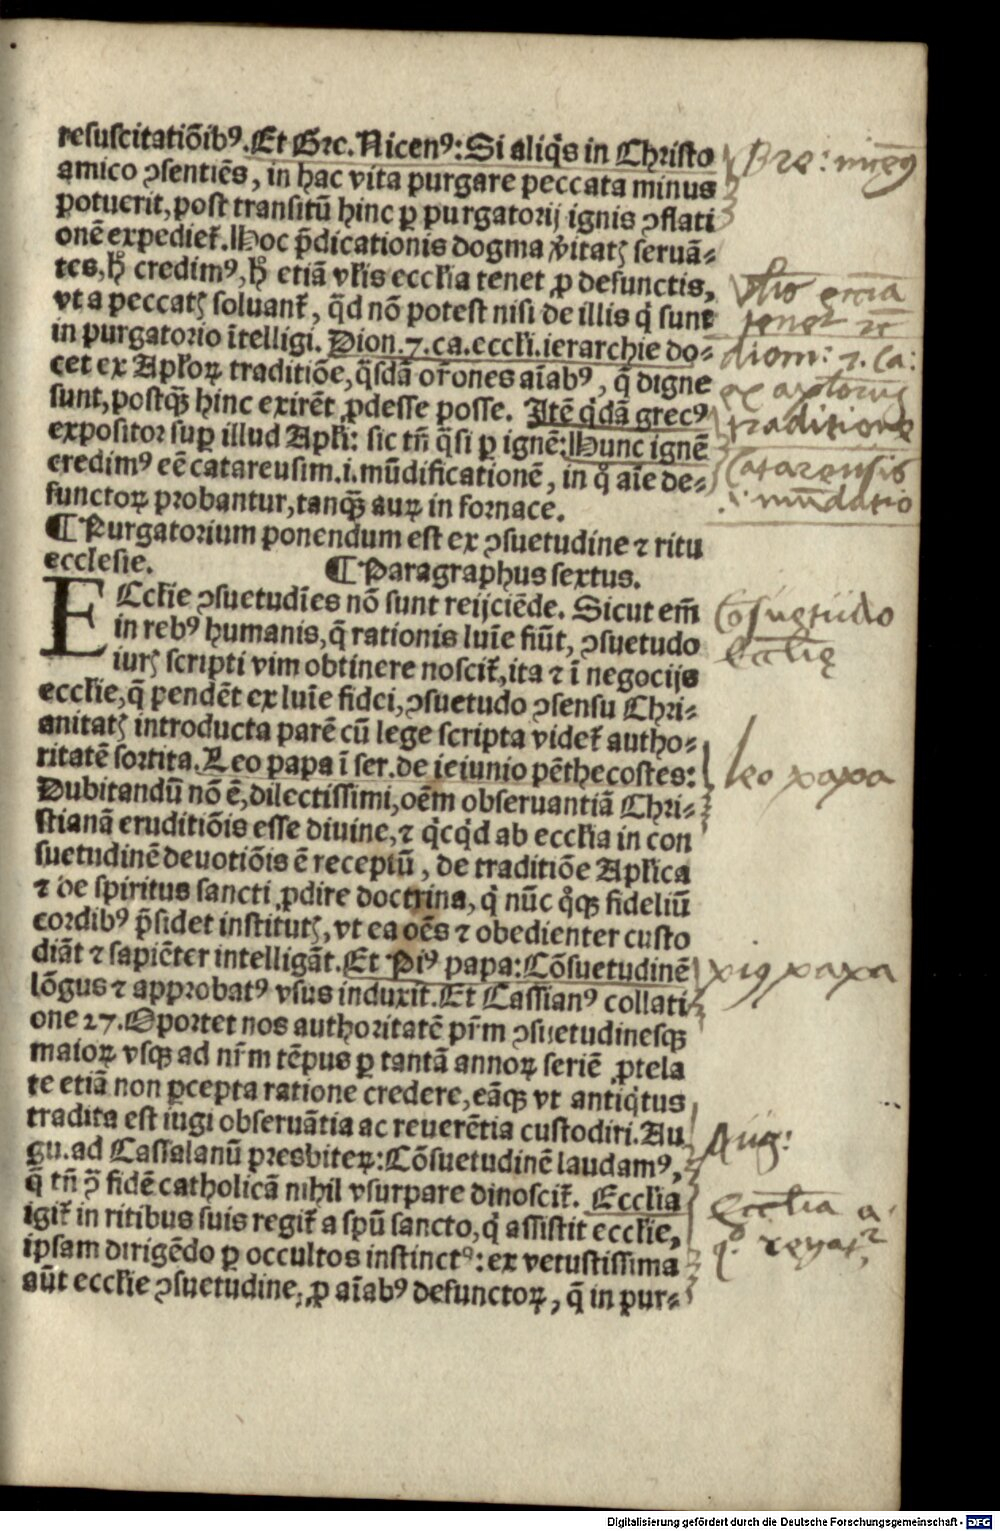 resuscitatiõibꝰ. Et Grc. Nicenꝰ: Si aliq̃s in Christo
amico ↄsentiẽs, in hac vita purgare peccata minus
potuerit, post transitũ hinc ꝑ purgatorij ignis ↄflati
onẽ expedieť. Hoc p̃dicationis dogma ṽitatꝭ seruã⸗
tes, ħ credimꝰ, ħ etiã vłis eccłia tenet ꝓ defunctis,
vt a peccatꝭ soluanť, q̃d nõ potest nisi de illis q̇ sunt
in purgatorio ĩtelligi. Dion. 7. ca. eccłi. ierarchie do⸗
cet ex Apłoꝝ traditiõe, q̃sdã or̃ones aĩabꝰ, q̃ digne
sunt, postq̃ꝫ hinc exirẽt ꝓdesse posse. Itẽ q̇dã grecꝰ
expositor suꝑ illud Apłi: sic tñ q̃si ꝑ ignẽ: Hunc ignẽ
credimꝰ eẽ catareusim .i. mũdificationẽ, in q̊ aĩe de⸗
functoꝝ probantur, tanq̃ꝫ auꝝ in fornace.
¶ Purgatorium ponendum est ex ↄsuetudine ⁊ ritu
ecclesie. ¶ Paragraphus sextus.
ECcłie ↄsuetudĩes nõ sunt reijciẽde. Sicut em̃
in rebꝰ humanis, q̃ rationis luĩe fiũt, ↄsuetudo
iurꝭ scripti vim obtinere nosciť, ita ⁊ ĩ negocijs
eccłie, q̃ pendẽt ex luĩe fidei, ↄsuetudo ↄsensu Chri⸗
anitatꝭ introducta parẽ cũ lege scripta videť autho⸗
ritatẽ sortita. Leo papa ĩ ser. de ieiunio pẽthecostes:
Dubitandũ nõ ẽ, dilectissimi, oẽm obseruantiã Chri⸗
stianã eruditiõis esse diuine, ⁊ q̇cq̇d ab eccłia in con
suetudinẽ deuotiõis ẽ receptũ, de traditiõe Apłica
⁊ de spiritus sancti ꝓdire doctrina, q̇ nũc q̊qꝫ fideliũ
cordibꝰ p̃sidet institutꝭ, vt ea oẽs ⁊ obedienter custo
diãt ⁊ sapiẽter intelligãt. Et Piꝰ papa: Cõsuetudinẽ
lõgus ⁊ approbatꝰ vsus induxit. Et Cassianꝰ collati
one 27. Oportet nos authoritatẽ pr̃m ↄsuetudinesqꝫ
maioꝝ vsqꝫ ad nr̃m tẽpus ꝑ tantã annoꝝ seriẽ ꝓtela
te etiã non ꝑcepta ratione credere, eãqꝫ vt antiq̇tus
tradita est iugi obseruãtia ac reuerẽtia custodiri. Au
gu. ad Cassalanũ presbiteꝝ: Cõsuetudinẽ laudamꝰ,
q̃ tñ ↄ̃ fidẽ catholicã nihil vsurpare dinosciť. Eccłia
igiť in ritibus suis regiť a spũ sancto, q̇ assistit eccłie,
ipsam dirigẽdo ꝑ occultos instinctꝰ: ex vetustissima
aũt eccłie ↄsuetudine, ꝓ aĩabꝰ defunctoꝝ, q̃ in pur⸗
Gre: nicẽꝰ
eccła
tenet ⁊c̃
dion: 7. Ca:
ex aptorũ
traditione
Catarensis
.i. mũdatio
Cõsuetudo
Eccłię
leo papa
piꝰ papa
Aug:
Ecclia a
regat᷑
Digitalisierung gefördert durch die Deutsche Forschungsgemeinschaft - DFG